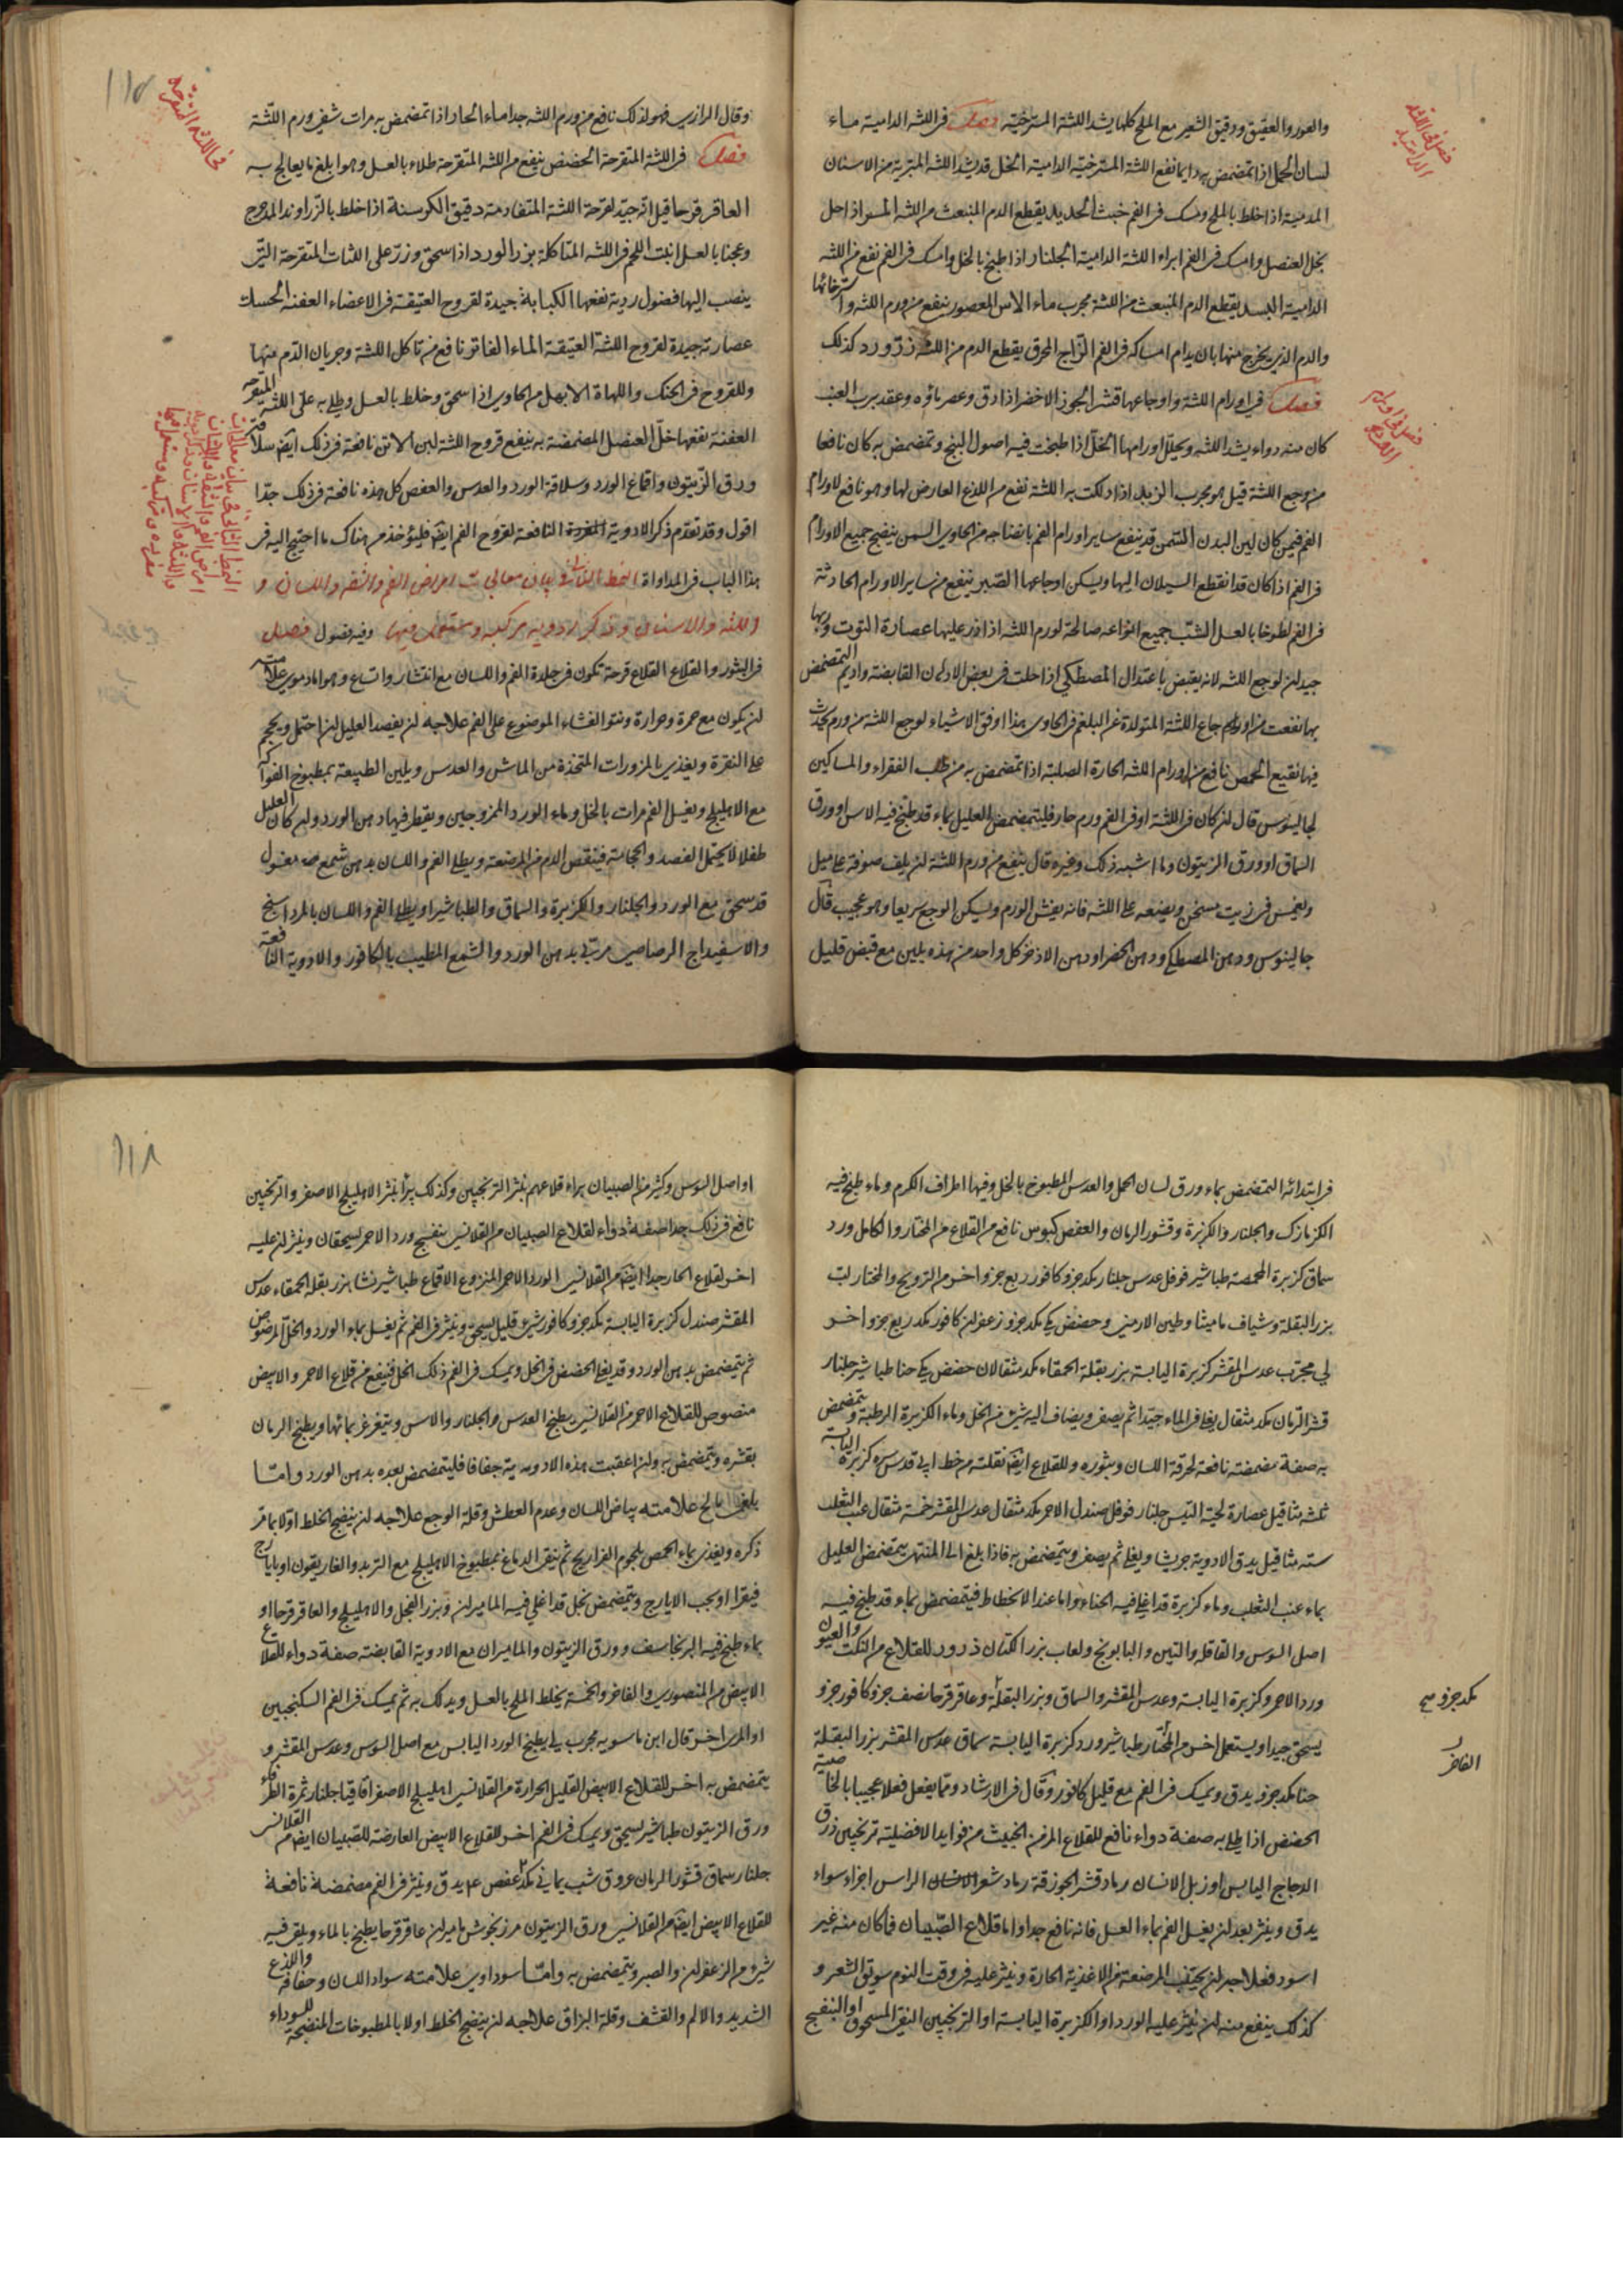 والعود والعقيق ودقيق الشعير مع الملح كلها يشد اللثة المسترخية فصل في اللثة الدامية ماء
لسان الحمل اذا تمضمض به دايما نفع اللثة المسترخية الدامية الخل قد يشد اللثة المتبرية من الاسنان
المدمية اذا خلط بالملح ومسك في الفم خبث الحديد يقطع الدم المنبعث من اللثة اذا حل
بخل العنصل وامسك في الفم ابراء اللثة الدامية الجلنار اذا طبخ بالخل وامسك في الفم نفع من اللثة
الدامية يقطع الدم المنبعث من اللثة مجرب ماء الاس المعصور ينفع من ورم اللثة واسترخائها
والدم الذي يخرج منها بان يدام امساكه في الفم الزاج المحرق يقطع الدم من اللثة ذرور ورد كذلك
فصل في اورام اللثة واوجاعها قشر الجوز الاخضر اذا دق وعصر ماؤه وعقد برب العنب
كان منه دواء يشد اللثة ويحلل اورامها الخل اذا طبخت فيه اصول البنج وتمضمض به كان نافعا
من وجع اللثة قيل هو مجرب الزبد اذا دلكت به اللثة نفع من اللذع العارض لها وهو نافع لاورام
الفم فيمن كان لين البدن السمن قد ينفع ساير اورام الفم بانضاجه من الحاوي السمن ينضج جميع الاورام
في الفم اذا كان قد انقطع السيلان اليها ويسكن اوجاعها الصبر ينفع من ساير الاورام الحادثة
في الفم لطوخا بالعسل الشب جميع انواعه صالحة لورم اللثة اذا ذر عليها عصارة التوت وربها
جيد لوجع اللثة لانه يقبض باعتدال المصطكي اذا حلت في بعض الادهان القابضة واديم التمضمض
بها نفعت من اوجاع اللثة المتولدة عن البلغم في الحاوي هذا اوفق الاشياء لوجع اللثة من ورم يحدث
فيها نقيع الحمص نافع من اورام اللثة الحارة الصلبة اذا تمضمض به من طب الفقراء والمساكين
لجالينوس قال ان كان في اللثة او في الفم ورم حار فليتمضمض العليل بماء قد طبخ فيه الاس او ورق
السماق او ورق الزيتون وما اشبه ذلك وغيره قال ينفع من ورم اللثة ان يلف صوفة على ميل
ويغمس في زيت مسخن ويضعه على اللثة فانه يفش الورم ويسكن الوجع سريعا وهو عجيب قال
جالينوس ودهن المصطكي ودهن الحضر او دهن الاذخر كل واحد من هذه يلين مع قبض قليل
فصل في اللثة الدامية
فصل في اورام اللثة
وقال الرازي هو لذلك نافع من ورم اللثة جدا ماء الحار اذا تمضمض به مرات شفي ورم اللثة
فصل في اللثة المتقرحة الحضض ينفع من اللثة المتقرحة طلاء بالعسل وهو ابلغ ما يعالج به
العاقر قرحا قيل انه جيد لقرحة اللثة المتقادمة دقيق الكرسنة اذا خلط بالزراوند المدحرج
وعجنا بالعسل انبت اللحم في اللثة المتاكلة بزر الورد اذا سحق وزر على اللثات المتقرحة التي
ينصب اليها فضول ردية نفعها الكبابة جيدة لقروح العتيقة في الاعضاء العفنة الحسك
عصارته جيدة لقروح اللثة العتيقة الماء الفاتر نافع من تاكل اللثة وجريان الدم منها
وللقروح في الحنك واللهاة الابهل من الحاوي اذا سحق وخلط بالعسل وطلي به على اللثة المتقرحة
العفنة نفعها خل العنصل المضمضة به ينفع قروح اللثة لبن الاتن نافعة في ذلك ايضا سلاقة
ورق الزيتون واقماع الورد وسلاقة الورد والعدس والعفص كل هذه نافعة في ذلك جدا
اقول وقد تقدم ذكر الادوية المفردة النافعة لقروح الفم ايضا فليؤخذ من هناك ما احتيج اليه في
هذا الباب في المداواة النمط الثاني في بيان معالجات امراض الفم والشفة واللسان و
اللثة والاسنان وذكر ادوية مركبة وستعمل فيها وفيه فصول فصل
في البثور والقلاع القلاع قرحة تكون في جلدة الفم واللسان مع انتشار واتساع وهو اما دموي علامته
ان يكون مع حمرة وحرارة ونتو الغشاء الموضوع على الفم علاجه ان يفصد العليل ان احتمل ويحجم
على النقرة ويغذي بالمزورات المتخذة من الماش والعدس ويلين الطبيعة بمطبوخ الفواكه
مع الاهليلج ويغسل الفم مرات بالخل وماء الورد الممزوجين ويقطر فيها دهن الورد وان كان العليل
طفلا لا يحتمل الفصد والحجامة فينقص الدم من المرضعة ويطلى الفم واللسان بدهن شمع مغسول
قد سحق مع الورد والجلنار والكزبرة والسماق والطباشير او يطلى الفم واللسان بالمرداسنج
والاسفيداج الرصاصي مربى بدهن الورد والشمع المطيب بالكافور والادوية النافعة
في اللثة المتقرحة
في ابتدائه التمضمض بماء ورق لسان الحمل والعدس المطبوخ بالخل وفيها اطراف الكرم وماء طبخ فيه
الكزمازك والجلنار والكزبرة وقشور الرمان والعفص كبوس نافع من القلاع من المختار والكامل ورد
سماق كزبرة المحمصة طباشير فوفل عدس جلنار مكد جزو كافور ربع جزو اخر من الترويح والمختار لب
بزر البقلة وشياف ماميثا وطين الارمني وحضض مكي مكد جزو زعفران كافور مكد ربع جزو اخر
لي مجرب عدس المقشر كزبرة اليابسة بزر بقلة الحمقاء مكد مثقالان حضض مكي حنا طباشير جلنار
قشر الرمان مكد مثقال يغلى في الماء جيدا ثم يصفى ويضاف اليه شيء من الخل وماء الكزبرة الرطبة ويتمضمض
به صفة مضمضة نافعة لحرقة اللسان وبثوره وللقلاع ايضا نقلته من خط ابي قدس سره كزبرة اليابسة
ثلثة مثاقيل عصارة لحية التيس جلنار فوفل صندل الاحمر مكد مثقال عدس المقشر خمسة مثقال عنب الثعلب
ستة مثاقيل يدق الادوية جريشا ويغلى ثم يصفى ويتمضمض به فاذا بلغ الى المنتهى يتمضمض العليل
بماء عنب الثعلب وماء كزبرة قد اغلي فيه الحناء واما عند الانحطاط فيتمضمض بماء قد طبخ فيه
اصل السوس والقاقلة والتين والبابونج ولعاب بزر الكتان ذرور للقلاع من النكت والعيون
ورد الاحمر وكزبرة اليابسة وعدس المقشر والسماق وبزر البقلة وعاقر قرحا نصف جزو كافور جزو
يسحق جيدا ويستعمل اخر من المختار طباشير ورد كزبرة اليابسة سماق عدس المقشر بزر البقلة
حنا مكد جزو يدق ويمسك في الفم مع قليل كافور وقال في الارشاد ومما يفعل فعلا عجيبا بالخاصية
الحضض اذا طلي به صفة دواء نافع للقلاع المزمن الخبيث من فوايد الافضلية ترنجبين ذرق
الدجاج اليابس او زبل الانسان رماد قشر الجوز رماد شعر الانسان الراس اجزاء سواء
يدق وينثر بعد ان يغسل الفم بماء العسل فانه نافع جدا واما قلاع الصبيان فما كان منه غير
اسود فعلاجه ان يجتنب المرضعة من الاغذية الحارة وينثر عليه في وقت النوم سويق الشعير و
كذلك ينفع منه ان ينثر عليه الورد او الكزبرة اليابسة او الترنجبين النقي المسحوق او البنفسج
مكد جزو
او اصل السوس وكثير من الصبيان براء قلاعهم بنثر الترنجبين وكذلك يبرأ بنثر الاهليلج الاصفر والترنجبين
نافع في ذلك جدا صفة دواء لقلاع الصبيان من القلانسي بنفسج ورد الاحمر يسحقان وينثران عليه
اخر لقلاع الحار جدا ايضا من القلانسي الورد الاحمر المنزوع الاقماع طباشير نشا بزر بقلة الحمقاء عدس
المقشر صندل كزبرة اليابسة مكد جزو كافور شيء قليل يسحق وينثر في الفم ثم يغسل بماء الورد والخل
ثم يتمضمض بدهن الورد وقد يغلى الحضض في الخل ويمسك في الفم ذلك الخل فينفع من قلاع الاحمر والابيض
منصوص للقلاع الاحمر من القلانسي يطبخ العدس والجلنار والاس ويتغرغر بمائها او يطبخ الرمان
بقشره ويتمضمض به وان اعقبت هذه الادوية جفافا فليتمضمض بعده بدهن الورد واما
بلغمي مالح علامته بياض اللسان وعدم العطش وقلة الوجع علاجه ان ينضج الخلط اولا بما مر
ذكره ويغذى بماء الحمص بلحوم الفراريج ثم ينقى الدماغ بمطبوخ الاهليلج مع التربد والغاريقون او بايارج
فيقرا او بحب الايارج ويتمضمض بخل قد اغلي فيه الماميران وبزر الفجل والاهليلج والعاقر قرحا او
بماء طبخ فيه البرنجاسف وورق الزيتون والماميران مع الادوية القابضة صفة دواء للقلاع
الابيض من المنصوري والفاخر والخمسة يخلط الملح بالعسل ويدلك به ثم يمسك في الفم السكنجبين
او المري اخر قال ابن ماسويه مجرب لي يطبخ الورد اليابس مع اصل السوس وعدس المقشر و
يتمضمض به اخر للقلاع الابيض القليل الحرارة من القلانسي اهليلج الاصفر اقاقيا جلنار ثمرة الطرفاء
ورق الزيتون طباشير يسحق ويمسك في الفم اخر للقلاع الابيض العارضة للصبيان ايضا من القلانسي
جلنار سماق قشور الرمان عروق شب يماني مكد عفص يدق وينثر في الفم مضمضة نافعة
للقلاع الابيض ايضا من القلانسي ورق الزيتون مرزنجوش ماميران عاقر قرحا يطبخ بالماء ويلقى فيه
شيء من الزعفران والصبر ويتمضمض به واما سوداوي علامته سواد اللسان وجفافه واللذع
الشديد والالم والقشف وقلة البزاق علاجه ان ينضج الخلط اولا بالمطبوخات المنضجة للسوداء